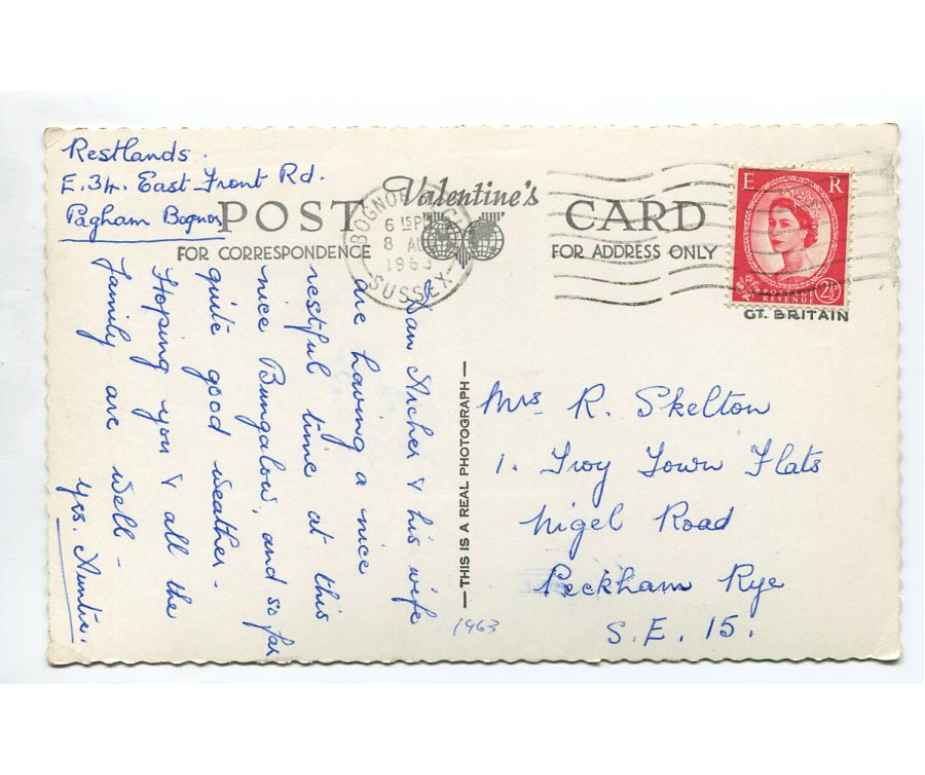 Restlands.
E.34. East Front Rd.
Pagham Bognor
POST
Valentine's
CARD
FOR CORRESPONDENCE
FOR ADDRESS ONLY
BOGNOR
6 15P
8 AU
1963
SUSSEX
E R
REVENUE
2½D
GT. BRITAIN
Sam Archer & his wife
are having a nice
restful time at this
nice Bungalow, and so far
quite good weather -
Hoping you & all the
family are well -
Yrs. Auntie.
— THIS IS A REAL PHOTOGRAPH —
Mrs R. Skelton
1. Troy Town Flats
Nigel Road
Peckham Rye
S.E. 15.
1963